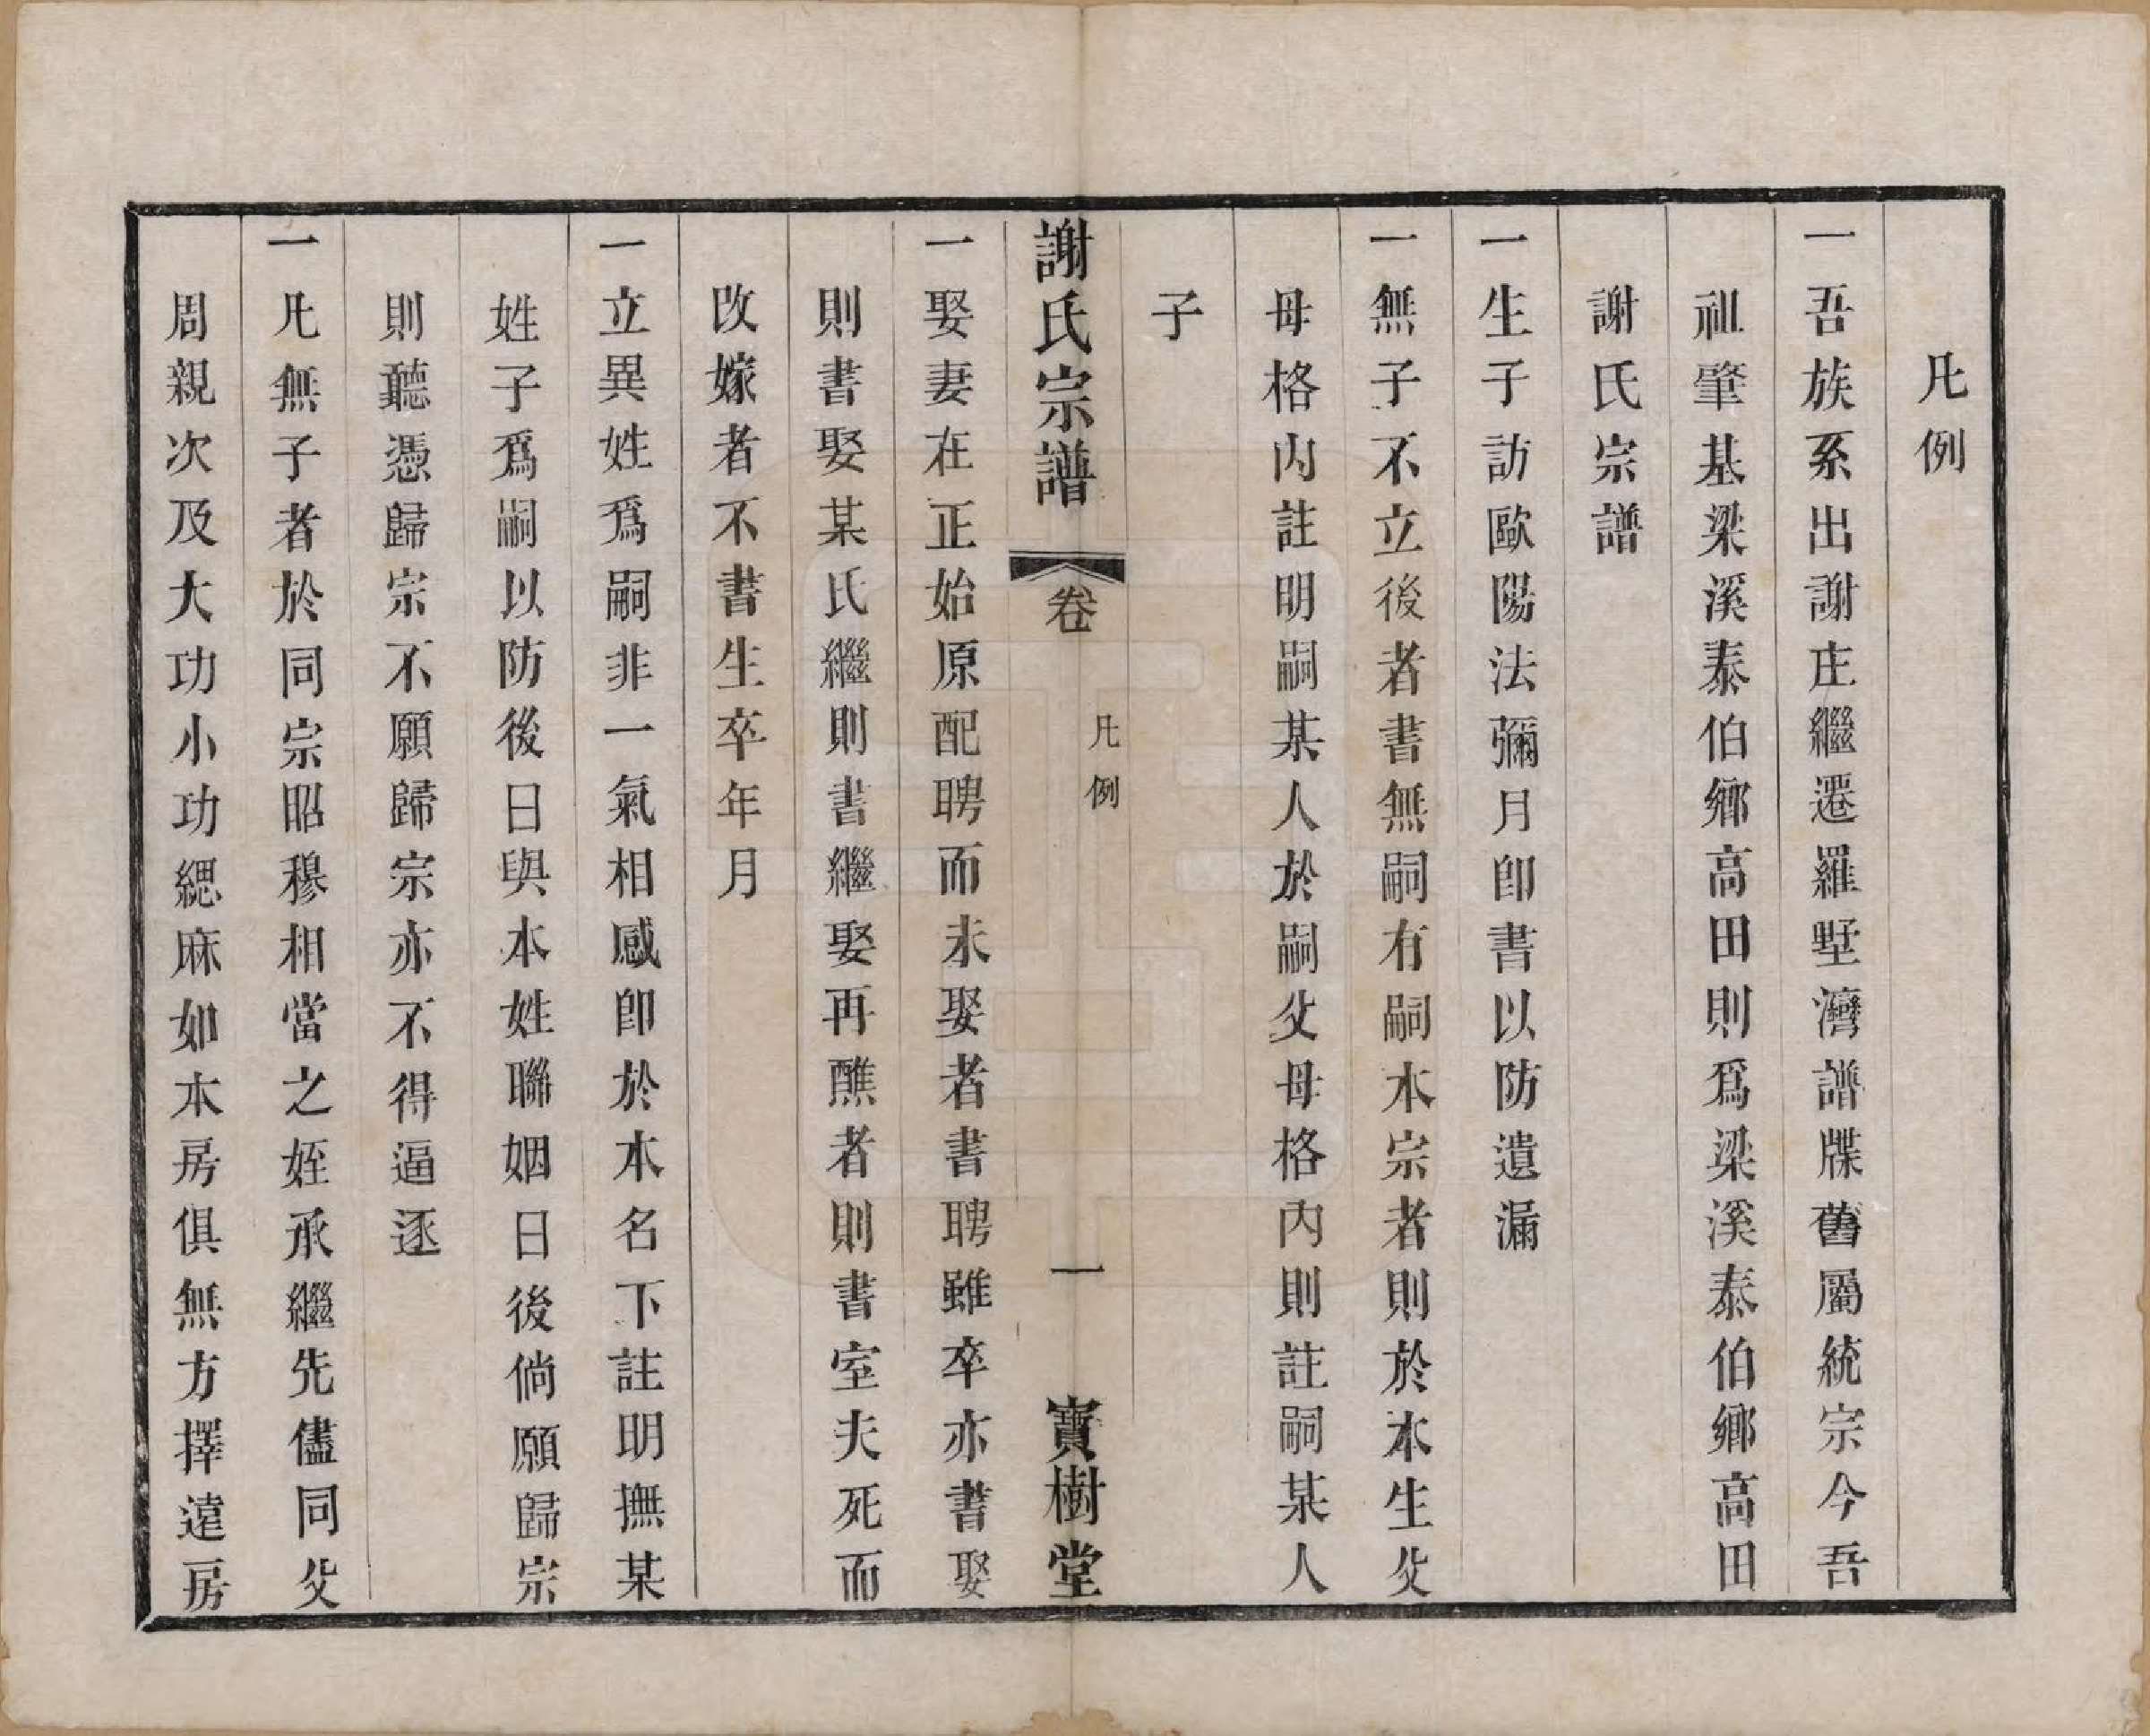 凡例
一吾族系出謝庄繼遷羅墅灣譜牒舊屬統宗今吾
祖肇基梁溪泰伯鄉高田則爲梁溪泰伯鄉高田
謝氏宗譜
一生子訪歐陽法彌月卽書以防遺漏
一無子不立後者書無嗣有嗣本宗者則於本生父
母格內註明嗣某人於嗣父母格內則註嗣某人
子
謝氏宗譜 卷 凡例 一 寶樹堂
一娶妻在正始原配聘而未娶者書聘雖卒亦書娶
則書娶某氏繼則書繼娶再醮者則書室夫死而
改嫁者不書生卒年月
一立異姓爲嗣非一氣相感卽於本名下註明撫某
姓子爲嗣以防後日與本姓聯姻日後倘願歸宗
則聽憑歸宗不願歸宗亦不得逼逐
一凡無子者於同宗昭穆相當之姪承繼先儘同父
周親次及大功小功緦麻如本房俱無方擇遠房